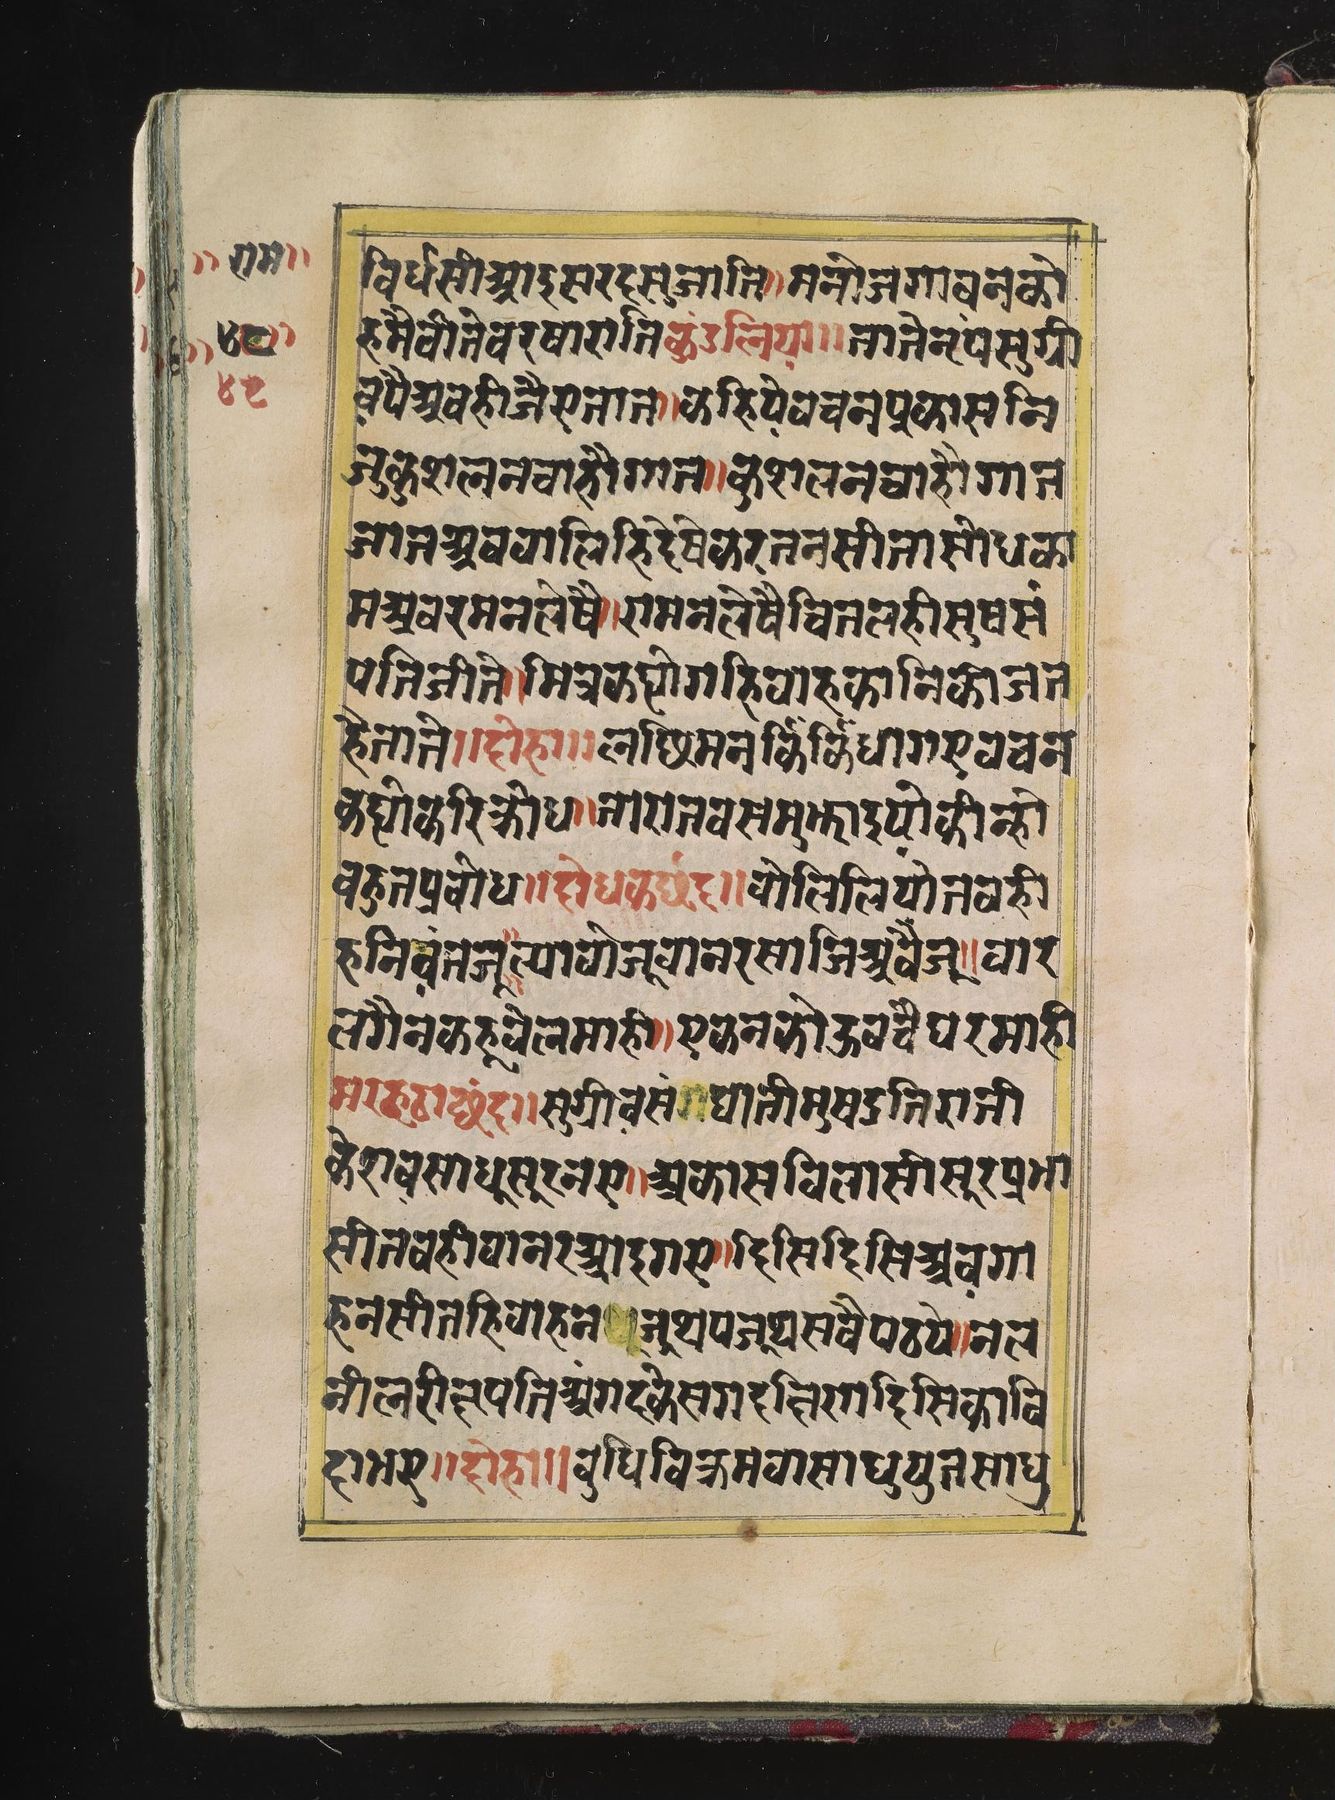 ॥राम॥
॥४९॥
४९
विर्धसीआइसरदसुजाति॥मनोजगावनको
हमैवीतेवरषाराति कुंडलिया॥ तातेनृपसुग्री
वपैअवहीजैएतात॥कहियेवचनप्रकासनि
जुकुशलनचाहौगात॥कुशलनचाहौगात
जातअववालिहिदेषेकरतनसीतासोधका
मअवरमनलेषै॥रामनलेषैचितलहीसुषसं
पतिजीते॥मित्रकह्योगहिवाहकानिकोजत
हैताते॥दोहा॥लछिमनकिंकिंधागएवचन
कह्योकरिक्रोध॥तारातवसमुझाइयोकीन्हो
वहुतप्रवोध॥दोधकछंद॥वोलिलियोतवही
हनिवंतजू॥ल्यावोजूवानरसाजिअवैजू॥वार
लगैनकहूवेलमाही॥एकनकोऊवचैघरमाही
मरहठाछंद॥सुग्रीवसंगघातीमुषडतिराती
केशवसाधूसूरनए॥अकासविलासीसूरप्रभा
सीतवहीवानरआइगए॥दिसिदिसिअवगा
हनसीतहिवाहनजूथपजूथसवैपठये॥नल
नीलरीछपतिअंगदकेसगदछिणदिसिकावि
दाभए॥दोहा॥वुधिविक्रमवासाधुयुतसाधु